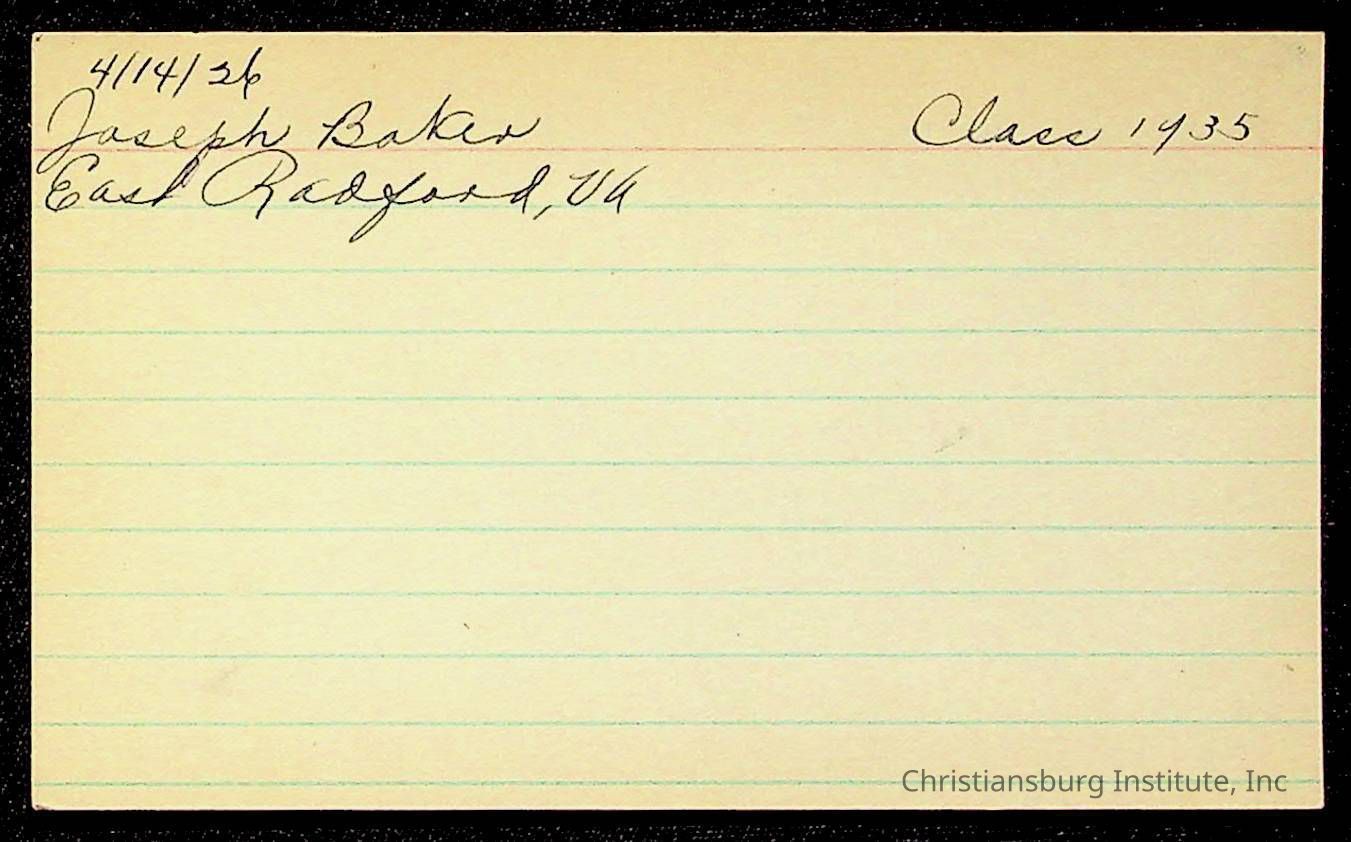 4/14/26
Joseph Baker Class 1935
East Radford, Va
Christiansburg Institute, Inc